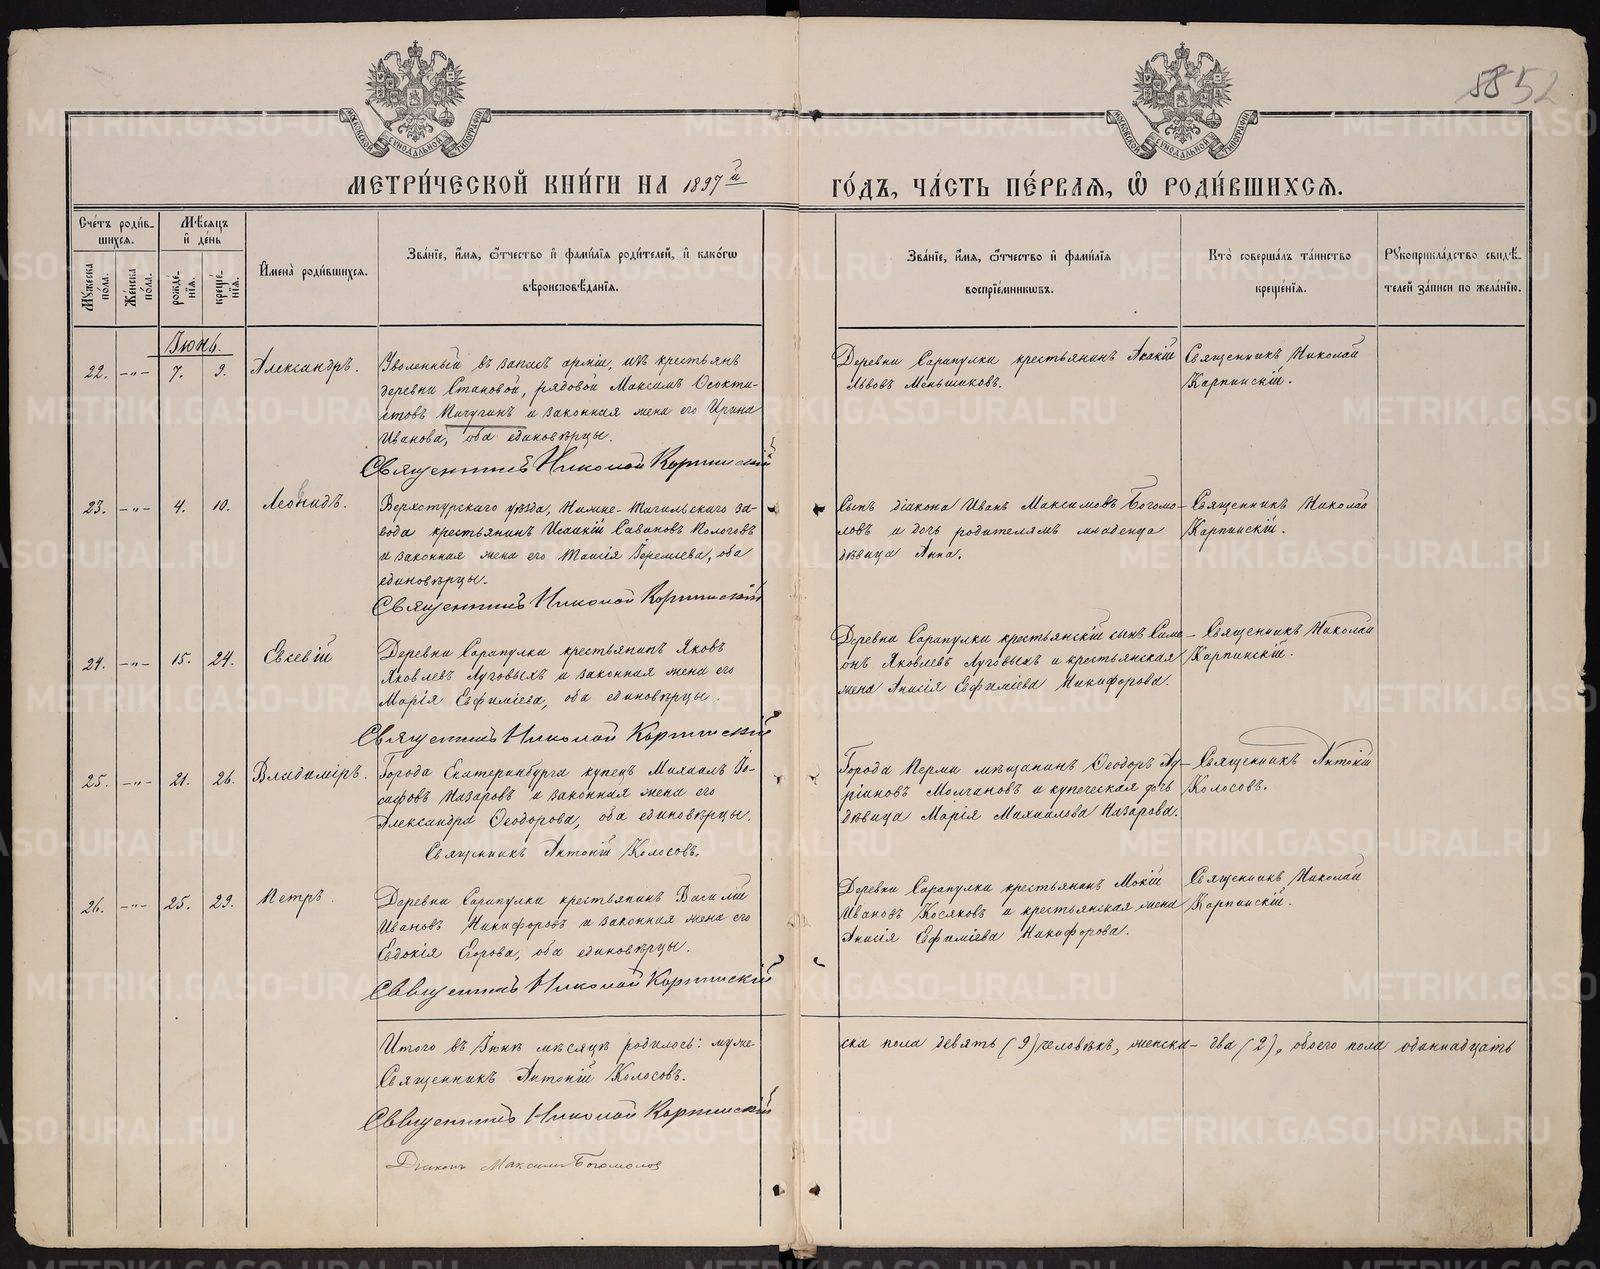 58 52
МЕТРИ́ЧЕСКОЙ КНИ́ГИ НА 1897й
ГО́ДЪ, ЧА́СТЬ ПЕ́РВАЯ, Ѿ РОДИ́ВШИХСѦ.
МОСКОВСКОЙ СѴНОДАЛЬНОЙ ТИПОГРАФІИ
МОСКОВСКОЙ СѴНОДАЛЬНОЙ ТИПОГРАФІИ
Сче́тъ роди́в-
шихсѧ.
Мꙋ́жеска по́ла.
Же́нска по́ла.
Мѣ́сѧцъ и҆ де́нь
рожде́-
нїѧ.
креще́-
нїѧ.
И҆мена̀ роди́вшихсѧ.
Зва́нїе, и҆́мѧ, ѻ҆́тчество и҆ фами́лїѧ роди́телей, и҆ како́гѡ
вѣроисповѣ́данїѧ.
Зва́нїе, и҆́мѧ, ѻ҆́тчество и҆ фами́лїѧ
воспрїе́мникѡвъ.
Кто̀ соверша́лъ та́инство
креще́нїѧ.
Рꙋкоприкла́дство свидѣ́-
телей за́писи по жела́нїю.
Іюнь.
22. -„- 7. 9. Александръ.
Уволенный въ запасъ арміи, изъ крестьянъ
деревни Становой, рядовой Максимъ Ѳеокти-
стовъ Мичугинъ и законная жена его Ирина
Иванова, оба единовѣрцы.
Священникъ Николай Карпинскій
Деревни Сарапулки крестьянинъ Акакій
Львовъ Меньшиковъ.
Священникъ Николай
Карпинскій.
23. -„- 4. 10. Леонидъ.
Верхотурскаго уѣзда, Нижне-Тагильскаго за-
вода крестьянинъ Исаакій Саввиновъ Пологовъ
и законная жена его Таисія Іереміева, оба
единовѣрцы.
Священникъ Николай Карпинскій
Сынъ діакона Иванъ Максимовъ Богомо-
ловъ и дочь родителямъ младенца
дѣвица Анна.
Священникъ Николай
Карпинскій.
24. -„- 15. 24. Евсевій
Деревни Сарапулки крестьянинъ Яковъ
Яковлевъ Луговыхъ и законная жена его
Марія Евфиміева, оба единовѣрцы.
Священникъ Николай Карпинскій
Деревни Сарапулки крестьянскій сынъ Симе-
онъ Яковлевъ Луговыхъ и крестьянская
жена Анисія Евфиміева Никифорова.
Священникъ Николай
Карпинскій.
25. -„- 21. 26. Владиміръ.
Города Екатеринбурга купецъ Михаилъ Іо-
сифовъ Назаровъ и законная жена его
Александра Ѳеодорова, оба единовѣрцы.
Священникъ Антоній Колосовъ.
Города Перми мѣщанинъ Ѳеодоръ Ау-
ріановъ Молчановъ и купеческая дочь
дѣвица Марія Михаилова Назарова.
Священникъ Антоній
Колосовъ.
26. -„- 25. 29. Петръ.
Деревни Сарапулки крестьянинъ Василій
Ивановъ Никифоровъ и законная жена его
Евдокія Егорова, оба единовѣрцы.
Священникъ Николай Карпинскій
Деревни Сарапулки крестьянинъ Мокій
Ивановъ Косяковъ и крестьянская жена
Анисія Ефиміева Никифорова.
Священникъ Николай
Карпинскій.
Итого въ Іюнѣ мѣсяцѣ родилось: муже-
ска пола девять (9) человѣкъ, женска - два (2), обоего пола одиннадцать
Священникъ Антоній Колосовъ.
Священникъ Николай Карпинскій
Діаконъ Максимъ Богомолов
METRIKI.GASO-URAL.RU